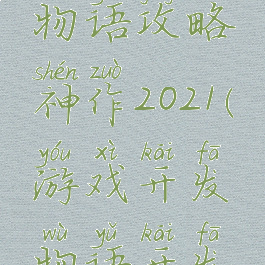 物语攻略
shén zuò
神作2021(
yóu xì kāi fā
游戏开发
wù yǔ kāi fā
物语开发